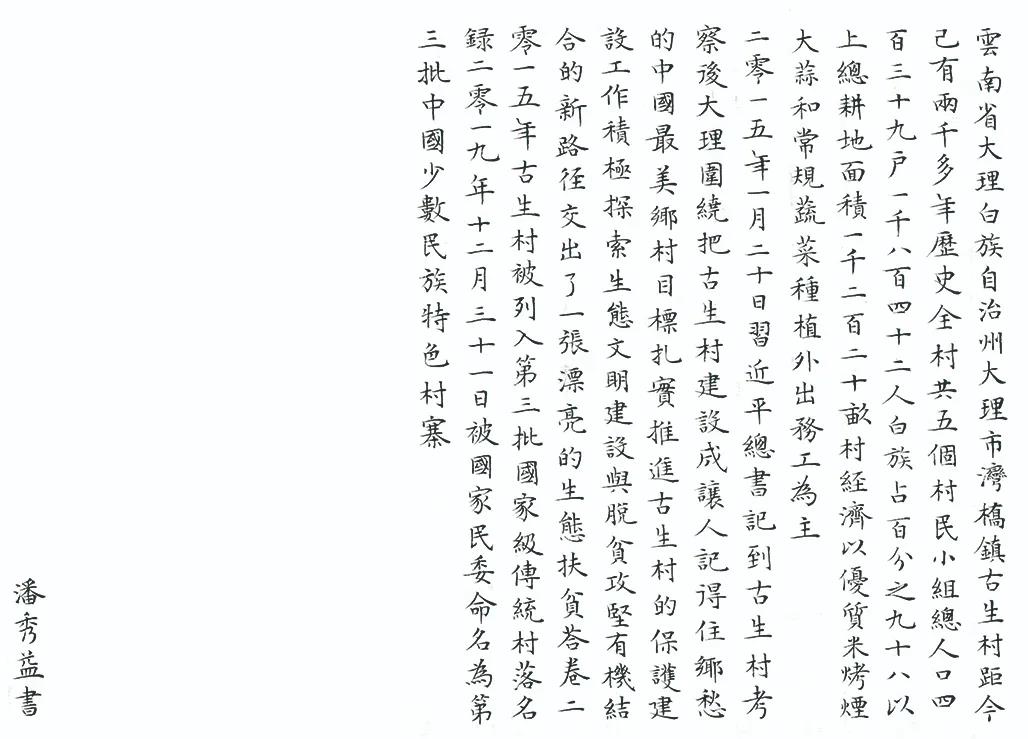 雲南省大理白族自治州大理市灣橋鎮古生村距今
已有兩千多年歷史全村共五個村民小組總人口四
百三十九戸一千八百四十二人白族占百分之九十八以
上總耕地面積一千二百二十畝村経濟以優質米烤煙
大蒜和常規蔬菜種植外出務工為主
二零一五年一月二十日習近平總書記到古生村考
察後大理圍繞把古生村建設成讓人記得住鄉愁
的中國最美鄉村目標扎實推進古生村的保護建
設工作積極探索生態文明建設與脫貧攻堅有機結
合的新路徑交出了一張漂亮的生態扶貧答卷二
零一五年古生村被列入第三批國家級傳統村落名
録二零一九年十二月三十一日被國家民委命名為第
三批中國少數民族特色村寨
潘秀益書